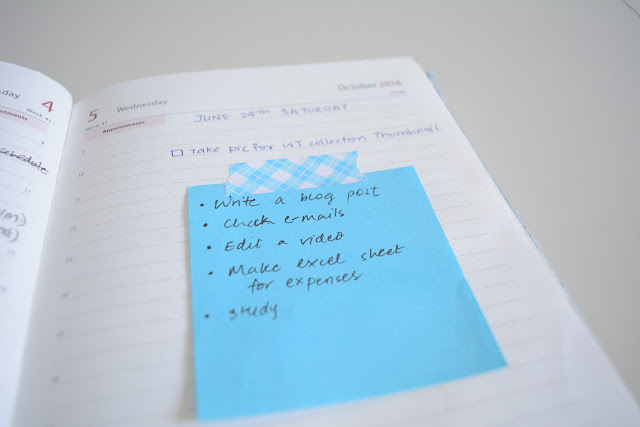 4
Week 41
schedule
5 Wednesday
October 2016
Week 41
Appointments
JUNE 24th SATURDAY
Take pic for WT collection Thumbnail
• Write a blog post
• Check e-mails
• Edit a video
• Make excel sheet
for expenses
• study